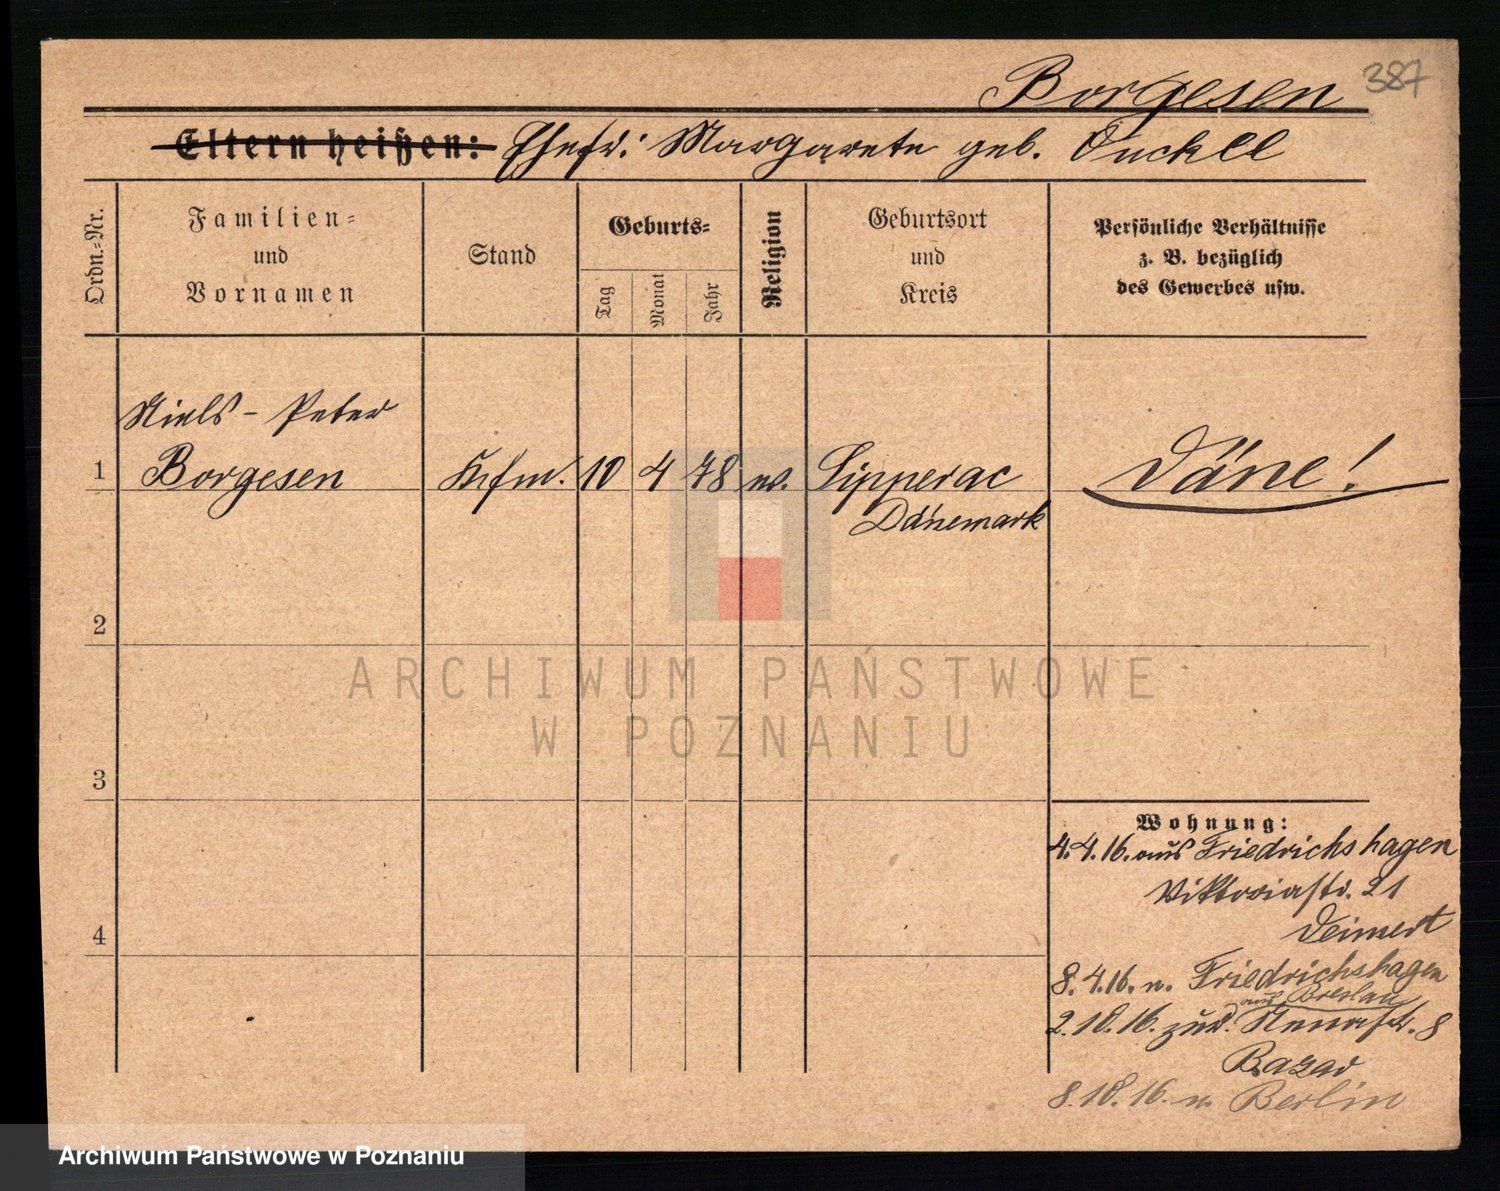 387
Borgesen
Eltern heißen: Ehefr: Margarete geb. Duckell
Ordn.=Nr.
Familien=
und
Vornamen
Stand
Geburts=
Tag
Monat
Jahr
Religion
Geburtsort
und
Kreis
Persönliche Verhältnisse
z. B. bezüglich
des Gewerbes usw.
Niels - Peter
1 Borgesen Kfm. 10 4 78 ev. Lipperac Däne!
Dänemark
2
3
4
Wohnung:
4.4.16. aus Friedrichshagen
Viktoriastr. 21
Deimert
8.4.16. n. Friedrichshagen
aus Breslau
2.10.16. zur. Neuestr. 8
Bazar
8.10.16. n. Berlin
ARCHIWUM PAŃSTWOWE
W POZNANIU
Archiwum Państwowe w Poznaniu